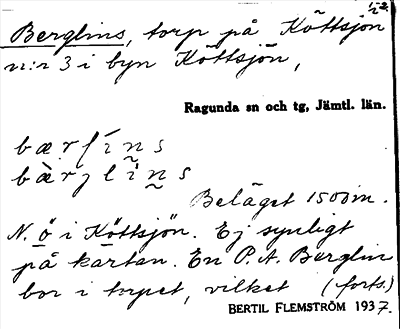 1/2.
Berglins, torp på Köttsjön
n:r 3 i byn Köttsjön,
Ragunda sn och tg, Jämtl. län.
Beläget 1500 m.
N. ö i Köttsjön. Ej synligt
på kartan. En P. A. Berglin
bor i torpet, vilket (forts.)
BERTIL FLEMSTRÖM 1937.